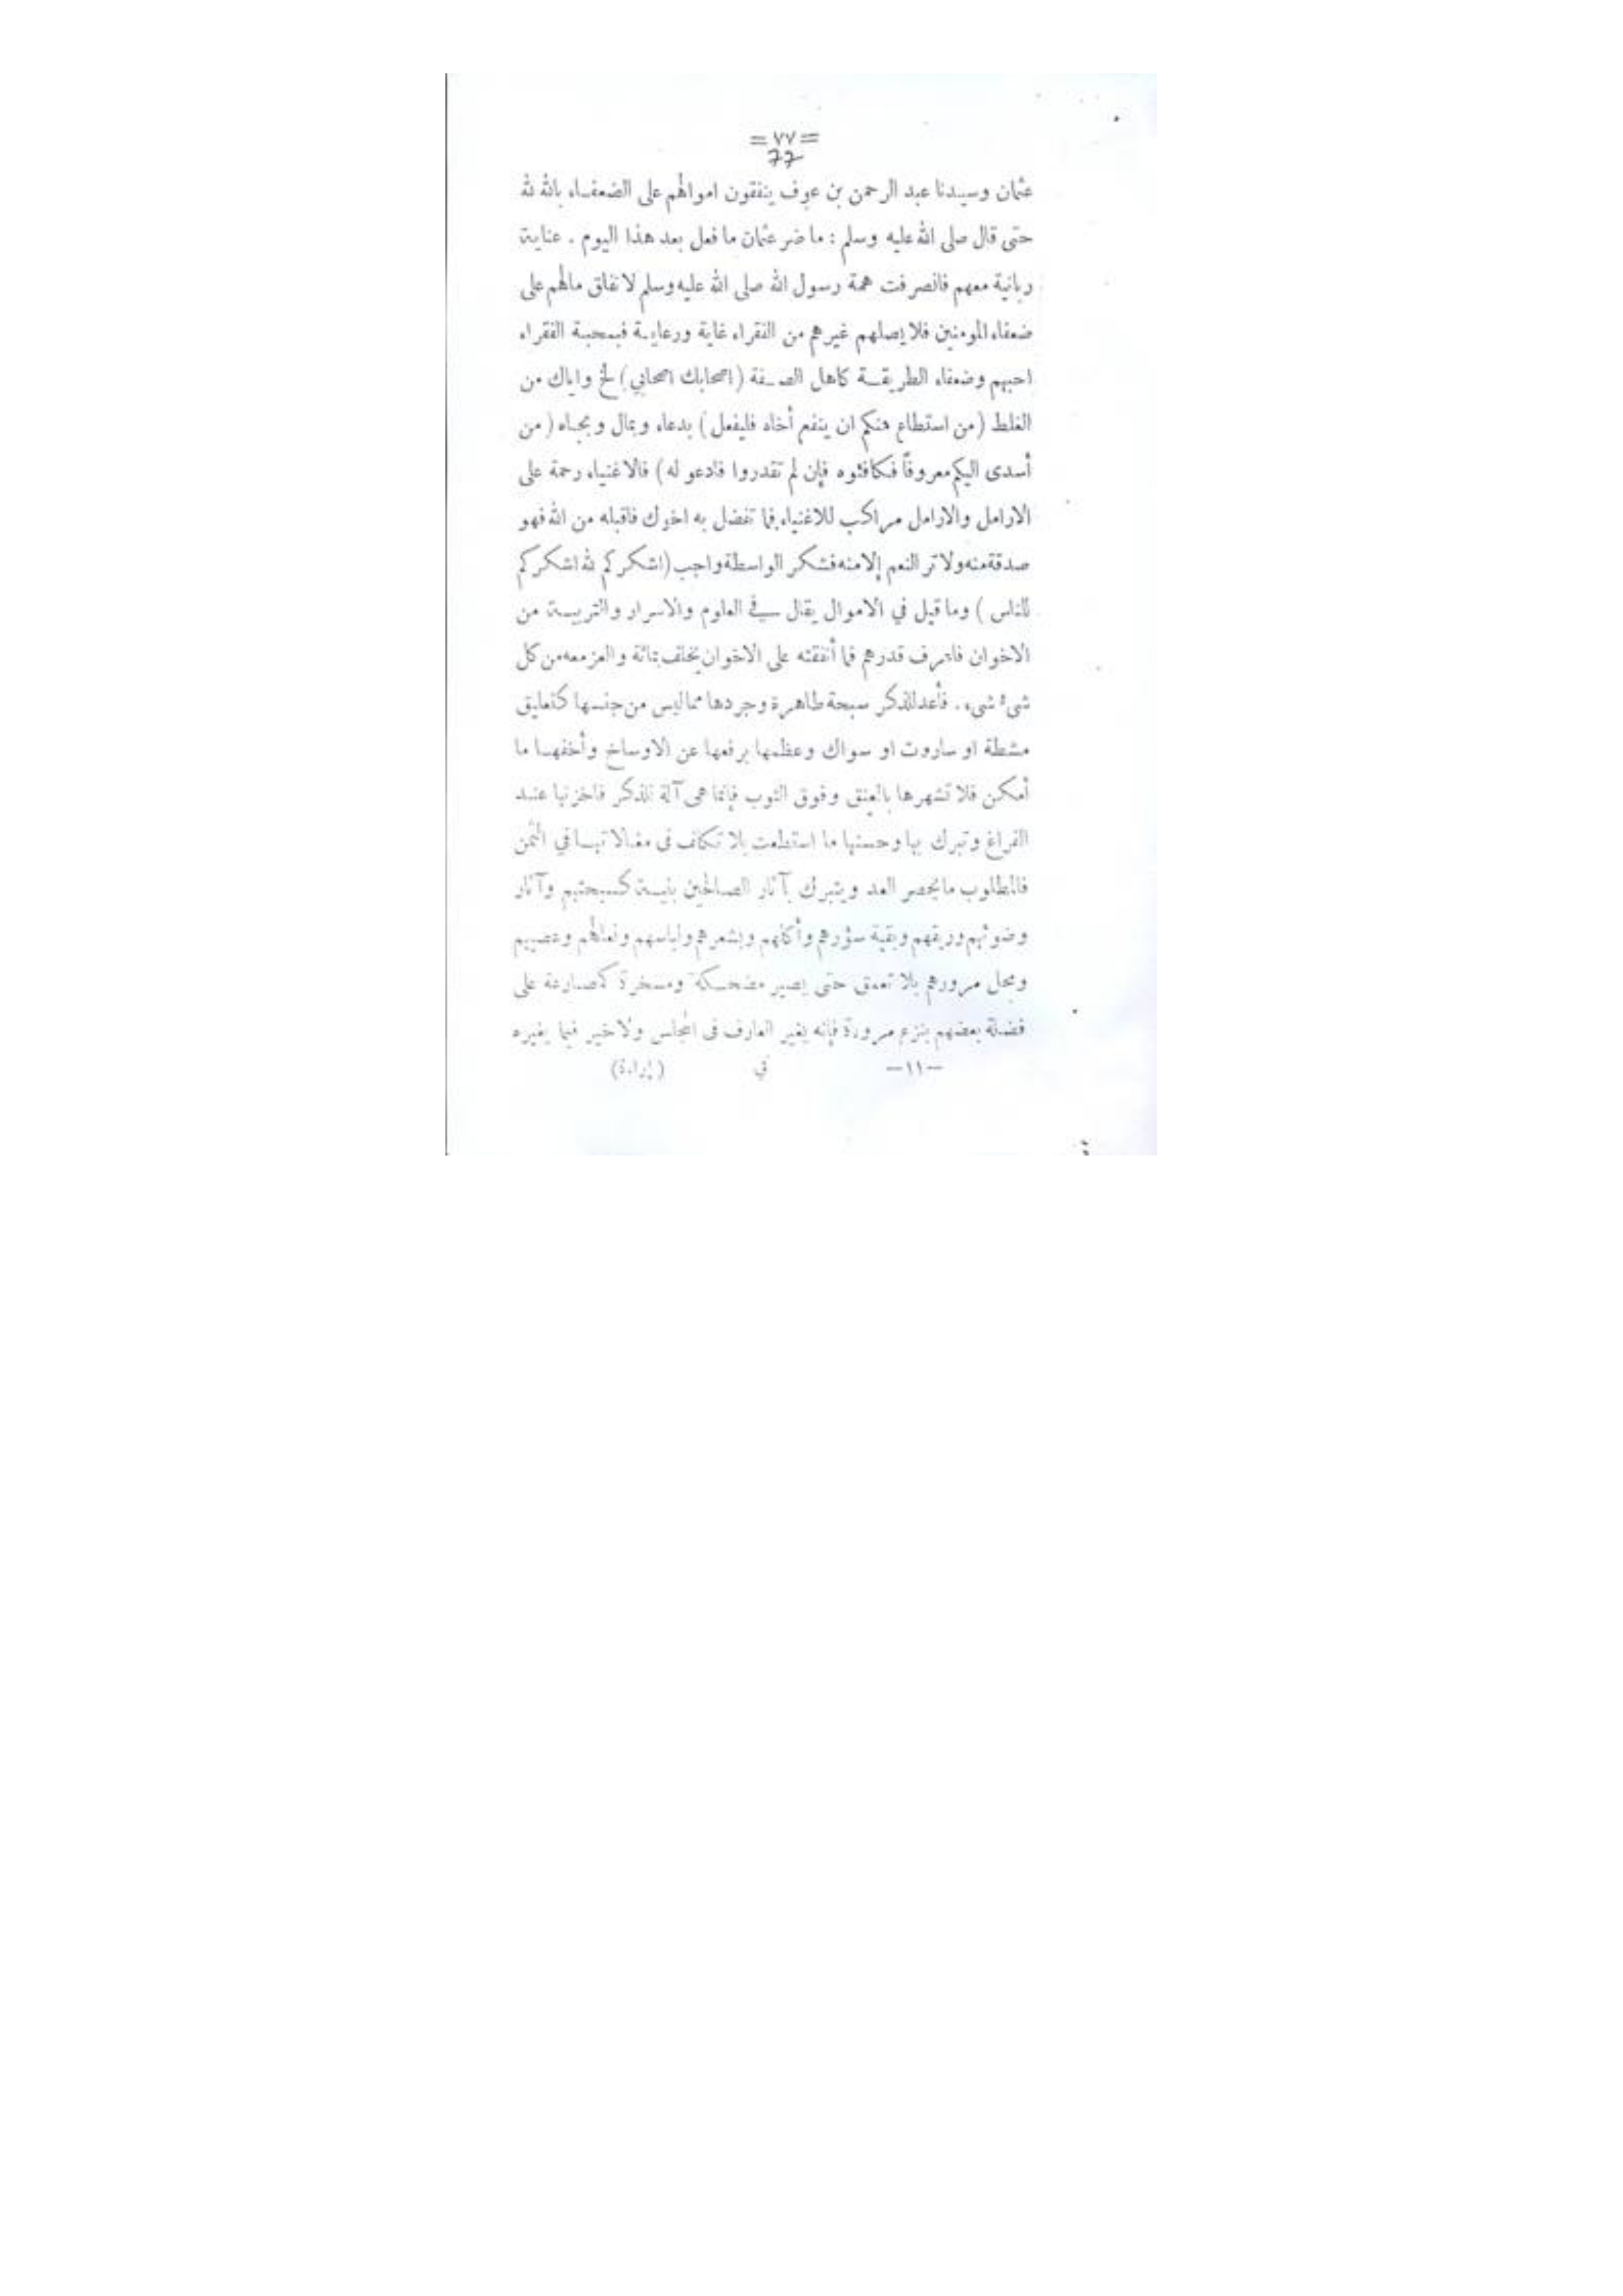 = ٧٧ =
77
عثمان وسيدنا عبد الرحمن بن عوف ينفقون اموالهم على الضعفاء بالله لله
حتى قال صلى الله عليه وسلم : ما ضر عثمان ما فعل بعد هذا اليوم . عناية
ربانية معهم فانصرفت همة رسول الله صلى الله عليه وسلم لانفاق مالهم على
ضعفاء المومنين فلا يصلهم غيرهم من الفقراء غاية ورعاية فبمحبة الفقراء
احبهم وضعفاء الطريقة كاهل الصفة (اصحابك اصحابي) لخ واياك من
الغلط (من استطاع منكم ان ينفع أخاه فليفعل) بدعاء وبمال وبجاه (من
أسدى اليكم معروفاً فكافئوه فإن لم تقدروا فادعو له) فالاغنياء رحمة على
الارامل والارامل مراكب للاغنياء فما تفضل به اخوك فاقبله من الله فهو
صدقة منه ولا تر النعم إلا منه فشكر الواسطة واجب (اشكركم لله اشكركم
للناس) وما قيل في الاموال يقال في العلوم والاسرار والتربية من
الاخوان فاعرف قدرهم فما أنفقته على الاخوان يخلف بمائة والعز معه من كل
شيء شيء . فأعد للذكر سبحة طاهرة وجردها مما ليس من جنسها كتعليق
مشطة او ساروت او سواك وعظمها برفعها عن الاوساخ وأخفها ما
أمكن فلا تشهرها بالعنق وفوق الثوب فإنما هي آلة للذكر فاخزنها عند
الفراغ وتبرك بها وحسنها ما استطعت بلا تكلف في مغالاتها في الثمن
فالمطلوب ما يحصر العد ويتبرك بآثار الصالحين بنية كسبحتهم وآثار
وضوئهم وريقهم وبقية سؤرهم وأكلهم وبشعرهم ولباسهم ونعالهم وعصيهم
ومحل مرورهم بلا تعمق حتى يصير مضحكة ومسخرة كمصارعة على
فضلة بعضهم بنزع مرورة فإنه يغير العارف في المجلس ولا خير فيما يغيره
—١١— في (إراءة)